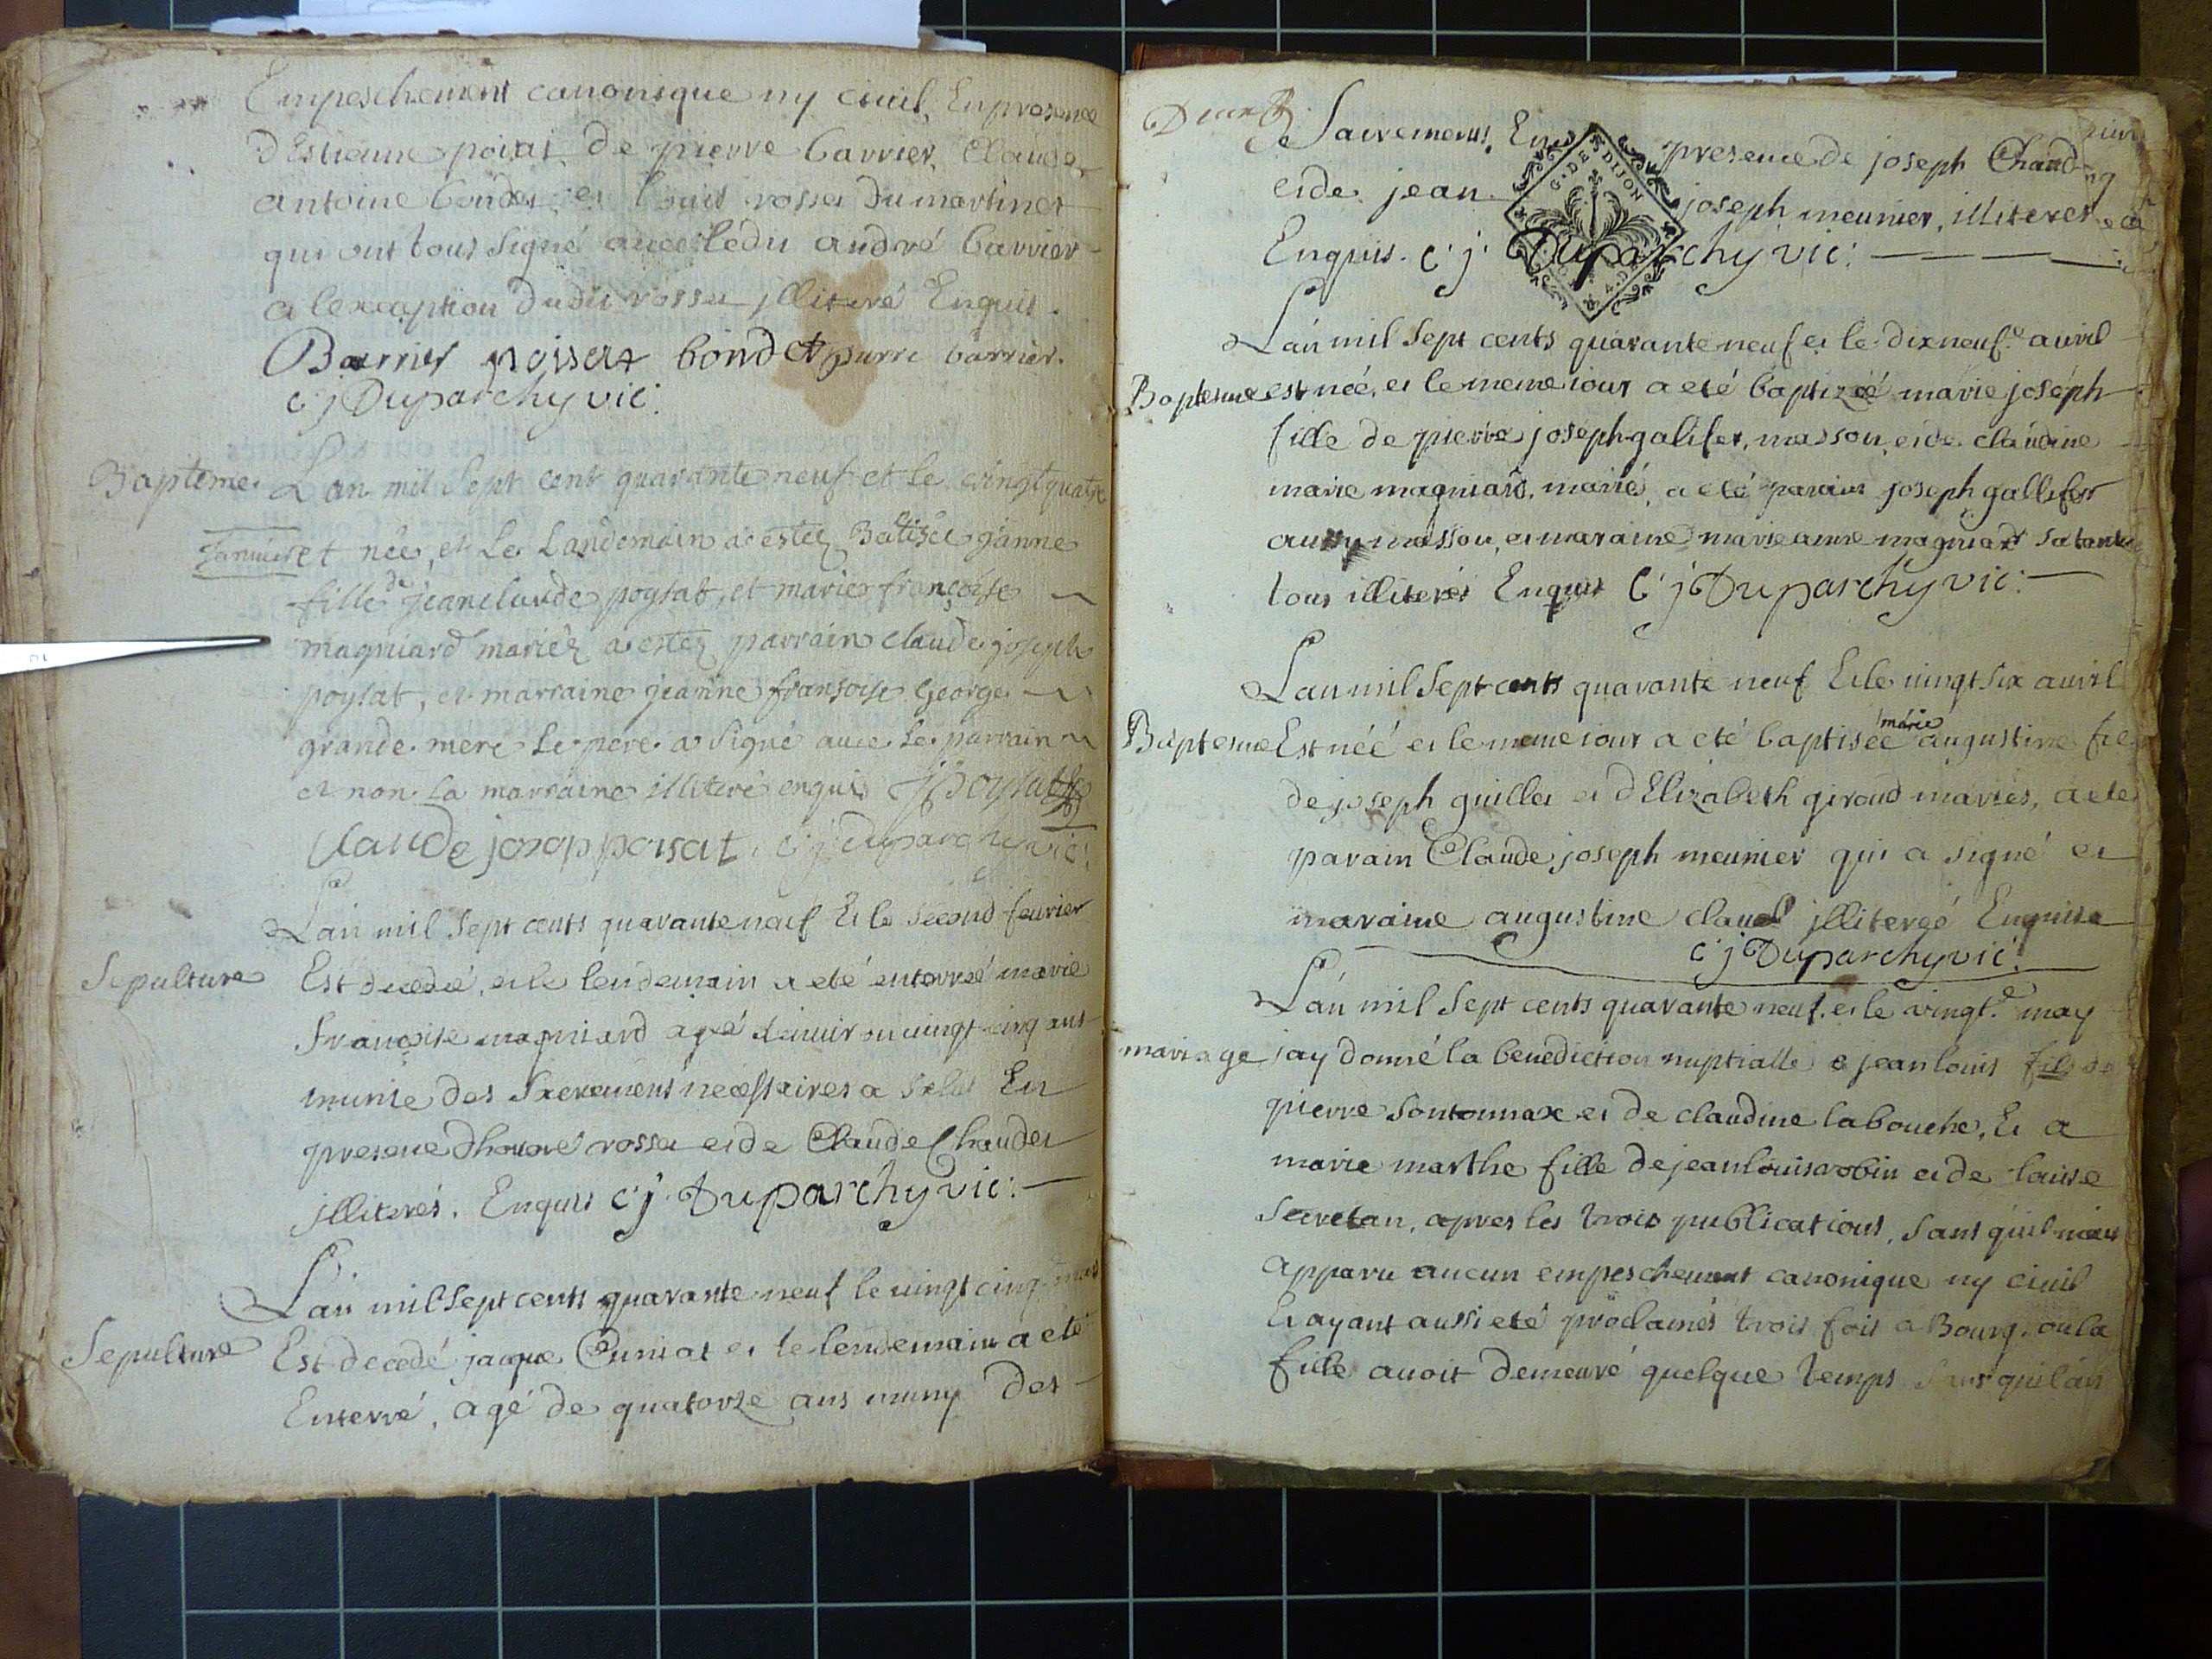 Empeschement canonique ny ciuil, En presence
d'Estienne poisat de pierre barrier, Claude
antoine bondet et louis rosset du martinet
qui ont tous signé auec ledit andré barrier
a lexception dudit rosset illiteré Enquis.
Barrier poissat bondet pierre barrier.
C j Duparchy vic:
Bapteme L an mil sept cent quarante neuf et le vingt quatre
Januier et née, et Le Landemain a estez Batisée janne
fille de jean claude poysat, et marie françoise
magniard mariez a estez parrain claude joseph
poysat, et marraine jeanne fransoise George
grande mere Le pere a signé auec Le parrain
et non la marraine illiteré enquis poysat
claude josop poisat, C j duparchy vic:
L'an mil sept cents quarante neuf Et le second feurier
Sepulture Est decedé, et le lendemain a eté enterreé marie
françoise magniard agé denuiron uingt cinq ans
munie des Sacrements necessaires a salut En
presence dhonoré rosset et de Claude Chaudet
illiterés. Enquis C j Duparchy vic:
L'an mil sept cents quarante neuf le uingt cinq mars
Sepulture Est decedé jacque Cuniat et le lendemain a eté
Enterré, agé de quatorze ans muny des
Sacrements, En presence de joseph Chaud
et de jean joseph meunier, illiterés
Enquis. C j Duparchy vic:
G. DE DIJON
L'an mil sept cents quarante neuf et le dixneuf.e auril
Baptesme est née, et le meme iour a eté baptizeé marie joseph
fille de pierre joseph galifet, masson, et de claudine
marie magniard, marié, a eté parain joseph gallifet
aussy masson, et maraine marie anne magniard sa tante
tous illiterés Enquis C j Duparchy vic:
L'an mil sept cents quarante neuf Et le uingt six auril
Baptesme Est neé et le meme iour a eté baptiseé marie augustine fie
de joseph guillet et d'Elizabeth giroud mariés, a eté
parain Claude joseph meunier qui a signé et
maraine augustine claud illitereé Enquise
C j Duparchy vic:
L'an mil sept cents quarante neuf, et le vingt.e may
mariage jay donné la benediction nuptialle a jean louis fils de
pierre sontonnax et de claudine labouche, Et a
marie marthe fille de jean louis robin et de louise
secretan, apres les trois publications, sans quil mait
apparu aucun empeschement canonique ny ciuil
Et ayant aussi eté proclamés trois fois a Bourg, ou la
fille auoit demeuré quelque temps sans quil ait